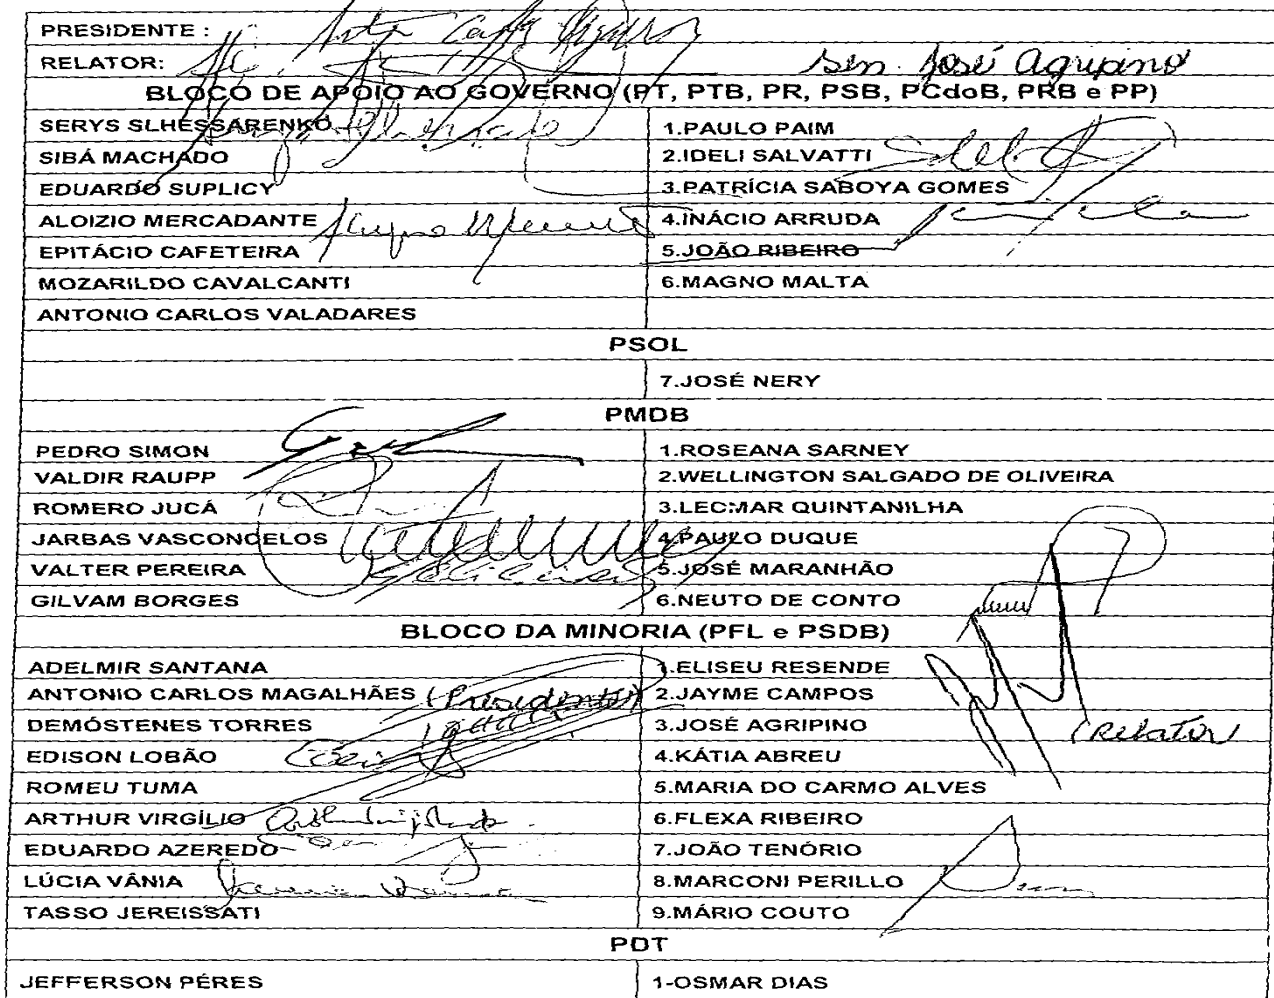 PRESIDENTE :
RELATOR: Sen. José Agripino
BLOCO DE APOIO AO GOVERNO (PT, PTB, PR, PSB, PCdoB, PRB e PP)
SERYS SLHESSARENKO 1.PAULO PAIM
SIBÁ MACHADO 2.IDELI SALVATTI
EDUARDO SUPLICY 3.PATRÍCIA SABOYA GOMES
ALOIZIO MERCADANTE 4.INÁCIO ARRUDA
EPITÁCIO CAFETEIRA 5.JOÃO RIBEIRO
MOZARILDO CAVALCANTI 6.MAGNO MALTA
ANTONIO CARLOS VALADARES
PSOL
7.JOSÉ NERY
PMDB
PEDRO SIMON 1.ROSEANA SARNEY
VALDIR RAUPP 2.WELLINGTON SALGADO DE OLIVEIRA
ROMERO JUCÁ 3.LEOMAR QUINTANILHA
JARBAS VASCONCELOS 4.PAULO DUQUE
VALTER PEREIRA 5.JOSÉ MARANHÃO
GILVAM BORGES 6.NEUTO DE CONTO
BLOCO DA MINORIA (PFL e PSDB)
ADELMIR SANTANA 1.ELISEU RESENDE
ANTONIO CARLOS MAGALHÃES (Presidente) 2.JAYME CAMPOS
DEMÓSTENES TORRES 3.JOSÉ AGRIPINO (Relator)
EDISON LOBÃO 4.KÁTIA ABREU
ROMEU TUMA 5.MARIA DO CARMO ALVES
ARTHUR VIRGÍLIO 6.FLEXA RIBEIRO
EDUARDO AZEREDO 7.JOÃO TENÓRIO
LÚCIA VÂNIA 8.MARCONI PERILLO
TASSO JEREISSATI 9.MÁRIO COUTO
PDT
JEFFERSON PÉRES 1-OSMAR DIAS